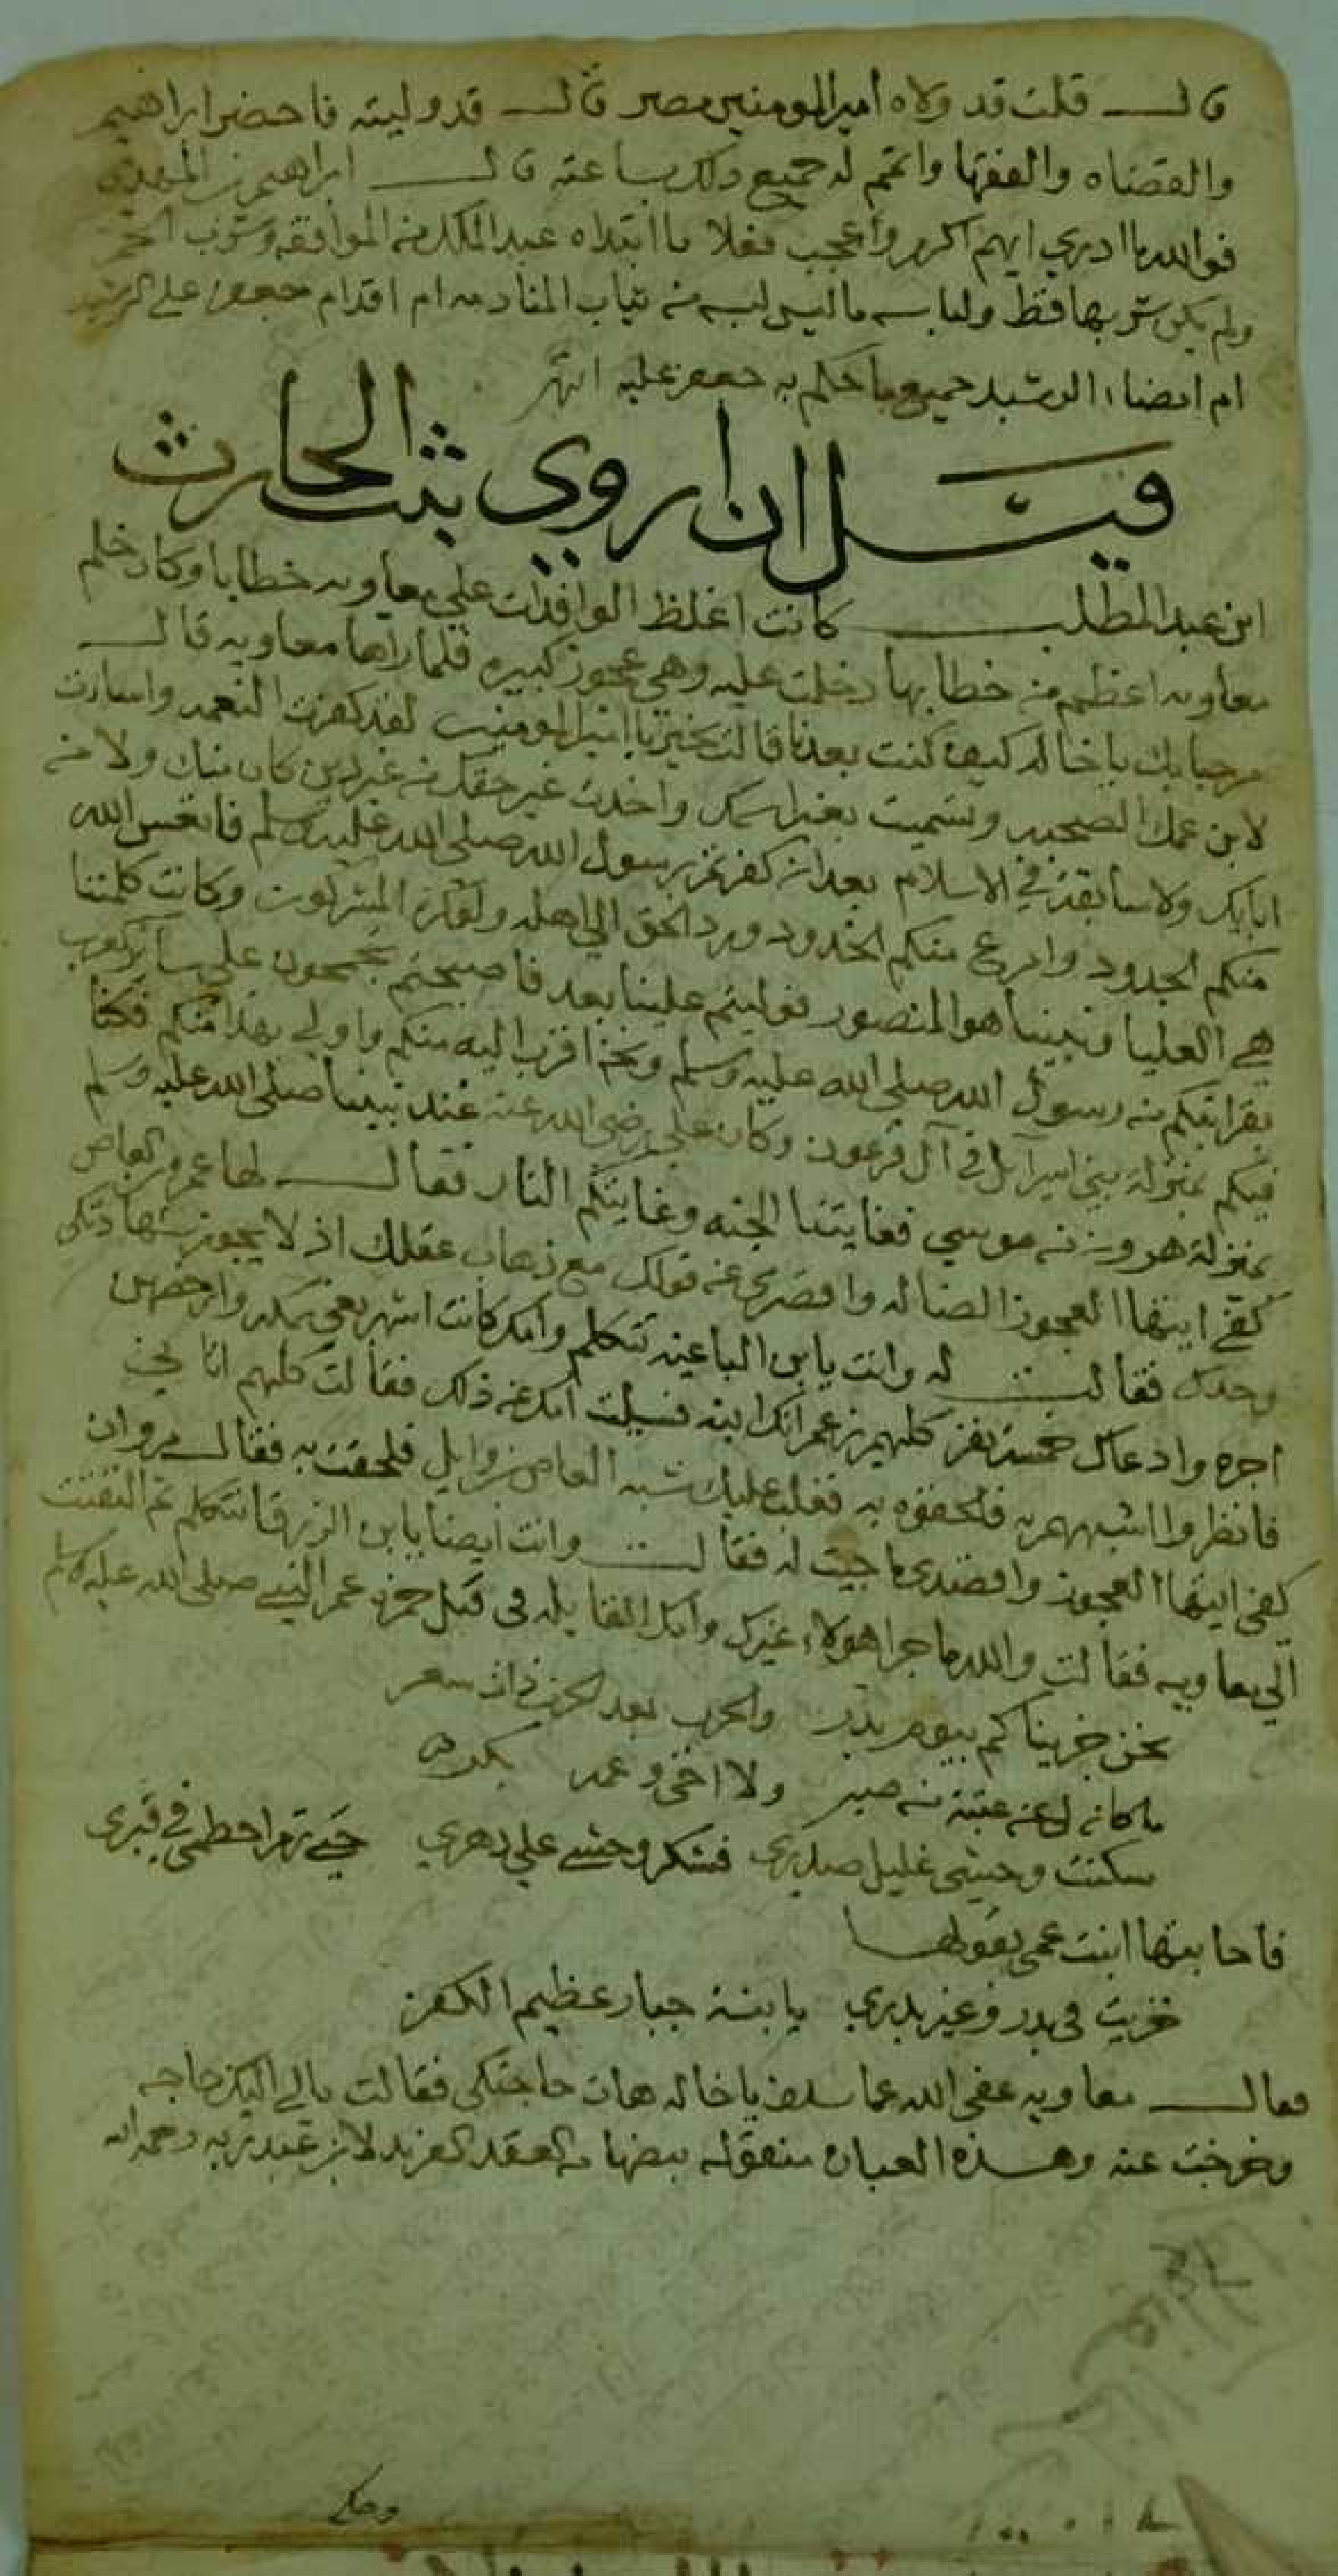 قال قلت قد ولاه أمير المومنين مصر قال قد وليته فاحضر ابراهيم
والقضاه والفقها واتمم له جميع ذلك بساعته قال ابراهيم بن المهدي
فوالله ما ادري ايهم اكرم واعجب فعلا ما ابتداه عبد الملك من الموافقه وشرب الخمر
ولم يكن شربها قط ولباسه ما ليس لبسه من ثياب المنادمه ام اقدام جعفر على الرشيد
ام امضاء الرشيد جميع ما حكم به جعفر عليه انتهى
قيل ان اروي بنت الحارث
ابن عبد المطلب كانت اغلظ الوافدات علي معاويه خطابا وكان حلم
معاويه اعظم من خطابها دخلت عليه وهي عجوز كبيره فلما راها معاويه قال
مرحبا بك يا خاله كيف كنت بعدنا قالت بخير يا امير المومنين لقد كفرت النعمه واسات
لابن عمك الصحبه وتسميت بغير اسمك واخذت غير حقك من غير دين كان منك ولا من
ابايك ولا سابقة في الاسلام بعد ان كفرتم برسول الله صلى الله عليه وسلم فاتعس الله
منكم الجدود واصرع منكم الخدود ورد الحق الي اهله ولو كره المشركون وكانت كلمتنا
هي العليا ونبينا هو المنصور فوليتم علينا بعد فاصبحتم تحتجون على سائر العرب
بقرابتكم من رسول الله صلى الله عليه وسلم ونحن اقرب اليه منكم واولي بهذا منكم فكنا
فيكم بمنزلة بني اسرآيل في آل فرعون وكان علي رضى الله عنه عند نبينا صلى الله عليه وسلم
بمنزلة هرون من موسي فغايتنا الجنه وغايتكم النار فقال لها عمرو بن العاص
كفي ايتها العجوز الضاله واقصري عن قولك مع ذهاب عقلك اذ لا يجوز شهادتكي
وحدك فقالت له وانت يا بن الباغيه تتكلم وامك كانت اشهر بغي بمكه وارخصهن
اجره وادعاك خمسة نفر كلهم يزعم انك ابنه فسيلت امك عن ذلك فقالت كلهم اتاني
فانظروا اشبههم به فلحقوه به فغلب عليك شبه العاص بن وايل فلحقت به فقال مروان
كفي ايتها العجوز واقصدي ما جيت له فقالت وانت ايضا يا بن الزرقا تتكلم ثم التفتت
الي معاويه فقالت والله ما جرا هولاء غيرك وامك القايله في قتل حمزه عم النبي صلى الله عليه وسلم
نحن جزيناكم بيوم بدر والحرب بعد الحرب ذات سعر
ما كان لي عن عتبة من صبر ولا اخي وعمه بكر
سكنت وحشي غليل صدري فشكر وحشي علي دهري حتي ترم اعظمي في قبري
فاجابتها ابنت عمي بقولها
خزيت في بدر وغير بدري يا بنة جبار عظيم الكفر
فقال معاويه عفى الله عما سلف يا خاله هات حاجتكي فقالت مالي اليك حاجه
وخرجت عنه وهذه العباره منقوله بنصها من العقد الفريد لابن عبد ربه رحمه الله
وحكي